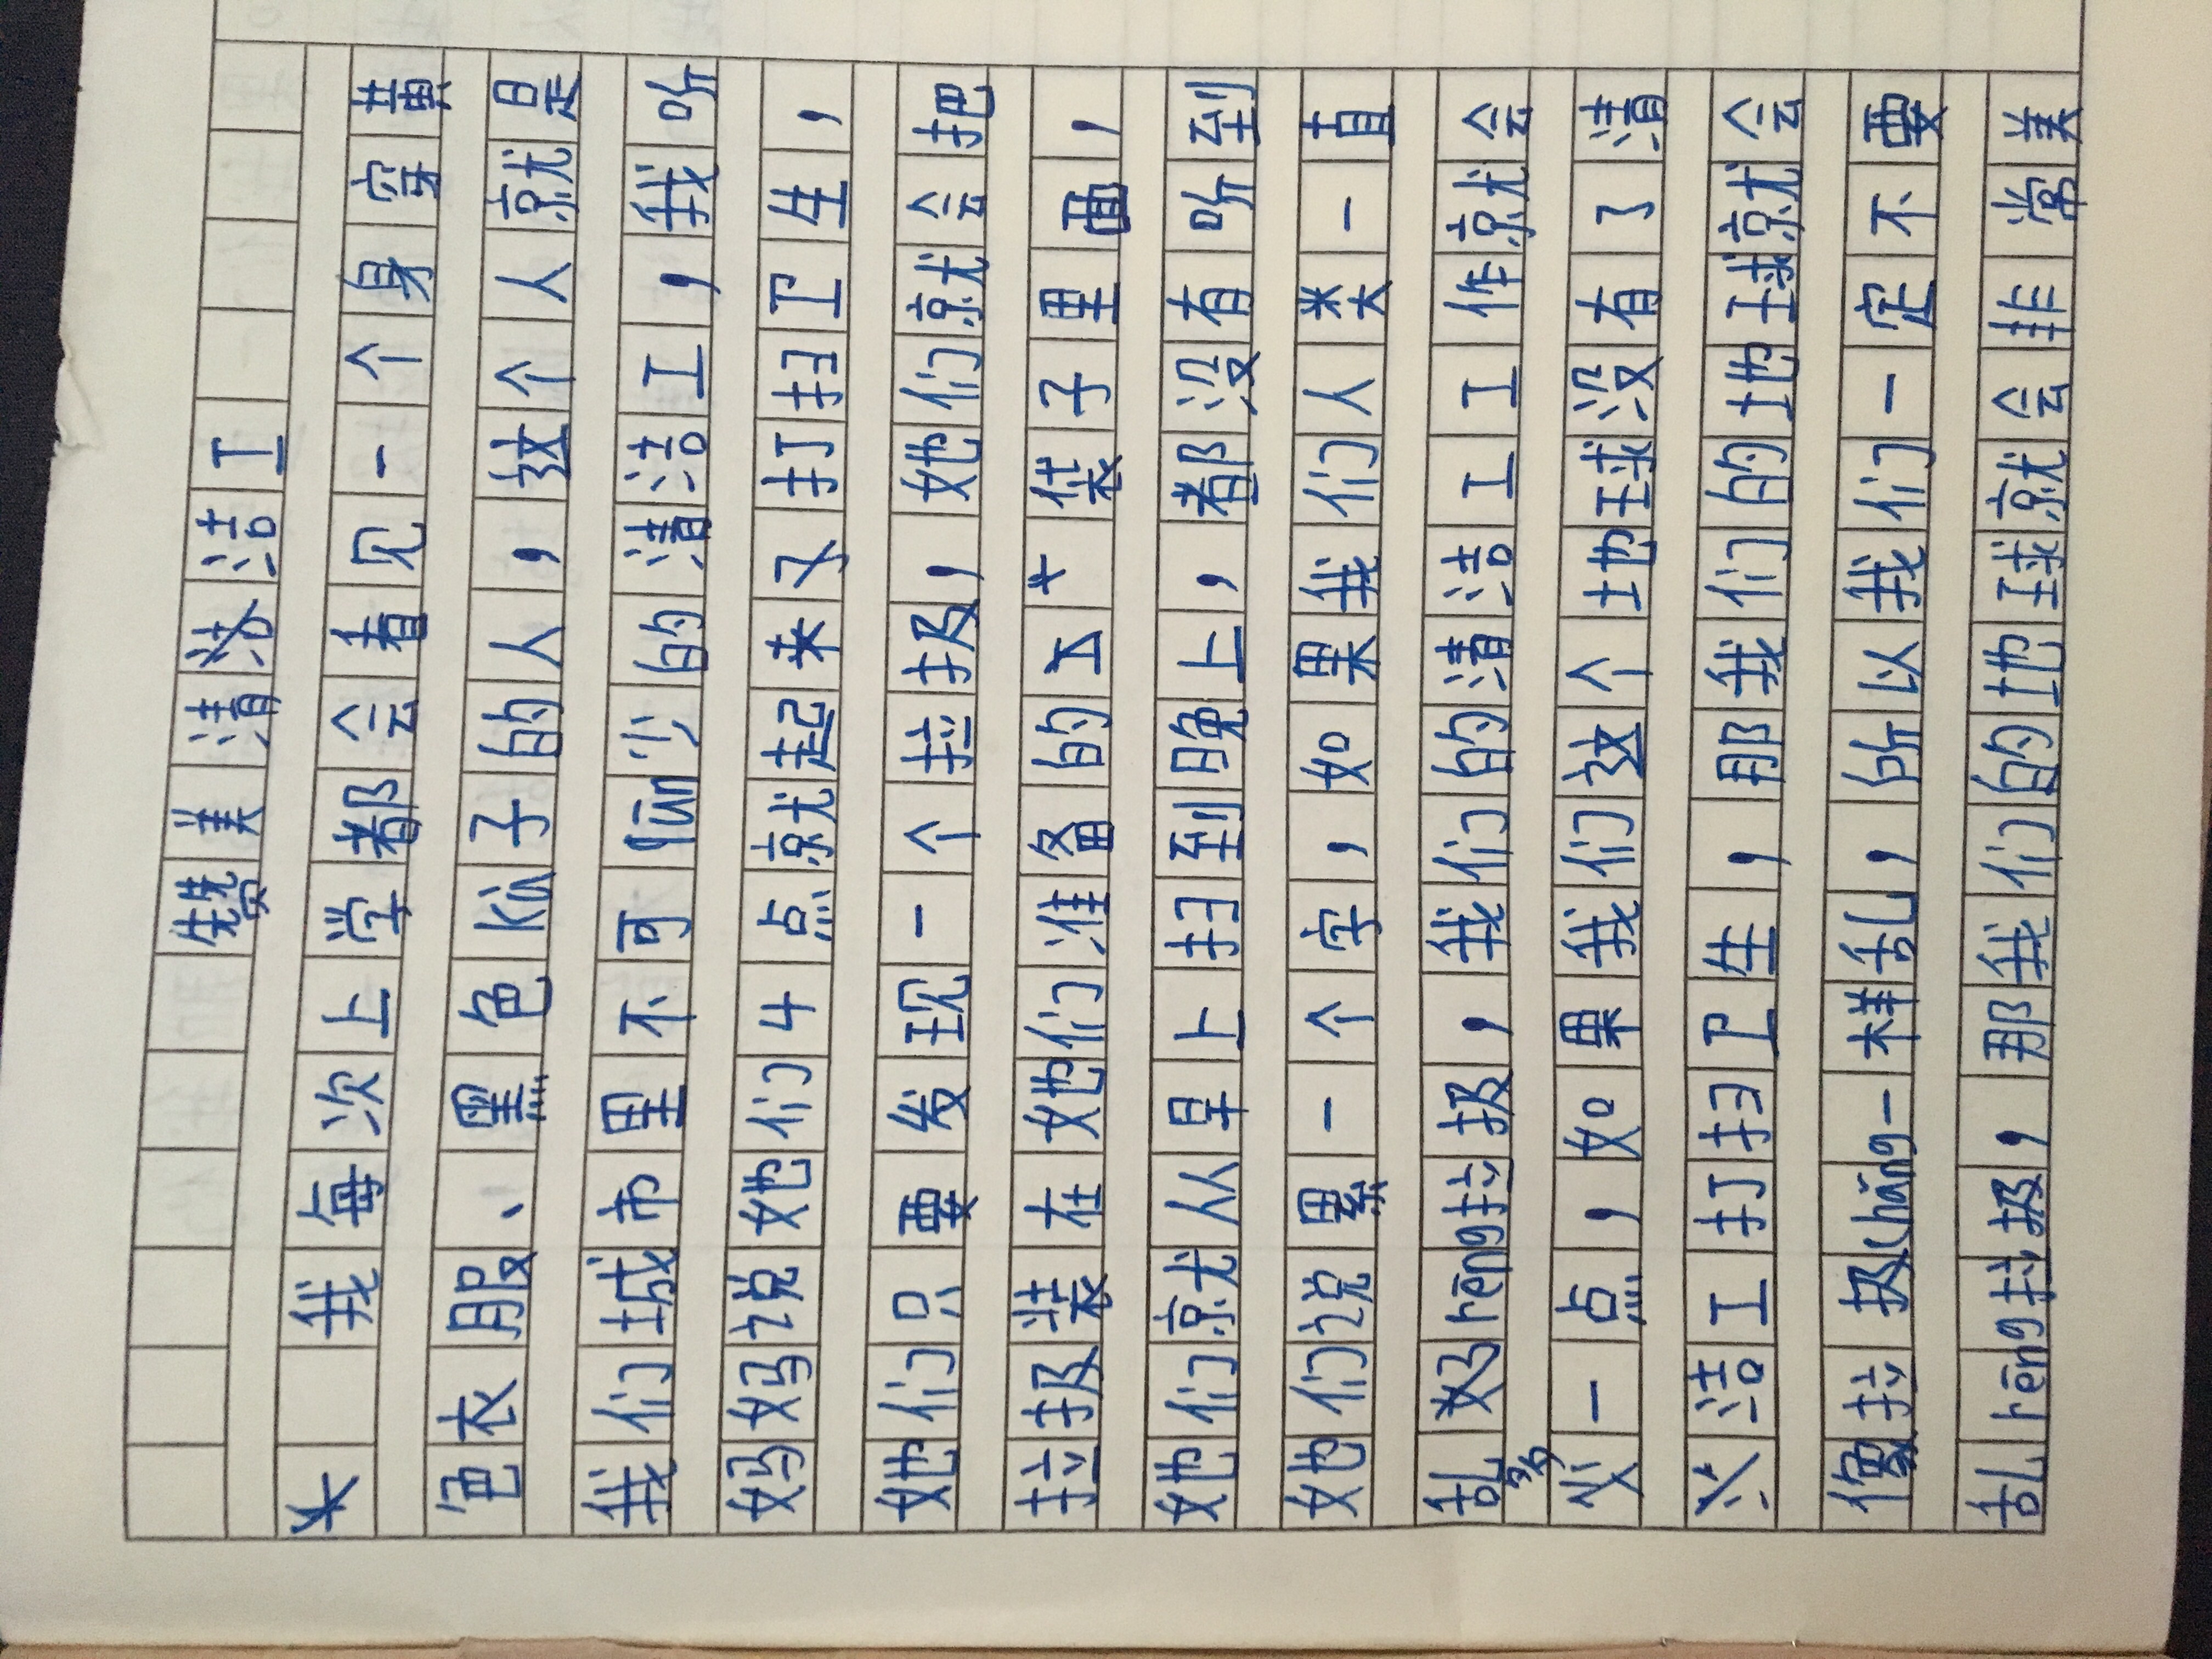 赞美清洁工
我每次上学都会看见一个身穿黄
色衣服、黑色kù子的人,这个人就是
我们城市里不可qūn少的清洁工,我听
妈妈说她们4点就起来又打扫卫生,
她们只要发现一个垃圾,她们就会把
垃圾装在她们准备的大袋子里面,
她们就从早上扫到晚上,都没有听到
她们说累一个字,如果我们人类一直
乱rēng垃圾,我们的清洁工工作就会
多一点,如果我们这个地球没有了清
洁工打扫卫生,那我们的地球就会
像垃圾chǎng一样乱,所以我们一定不要
乱rēng垃圾,那我们的地球就会非常美